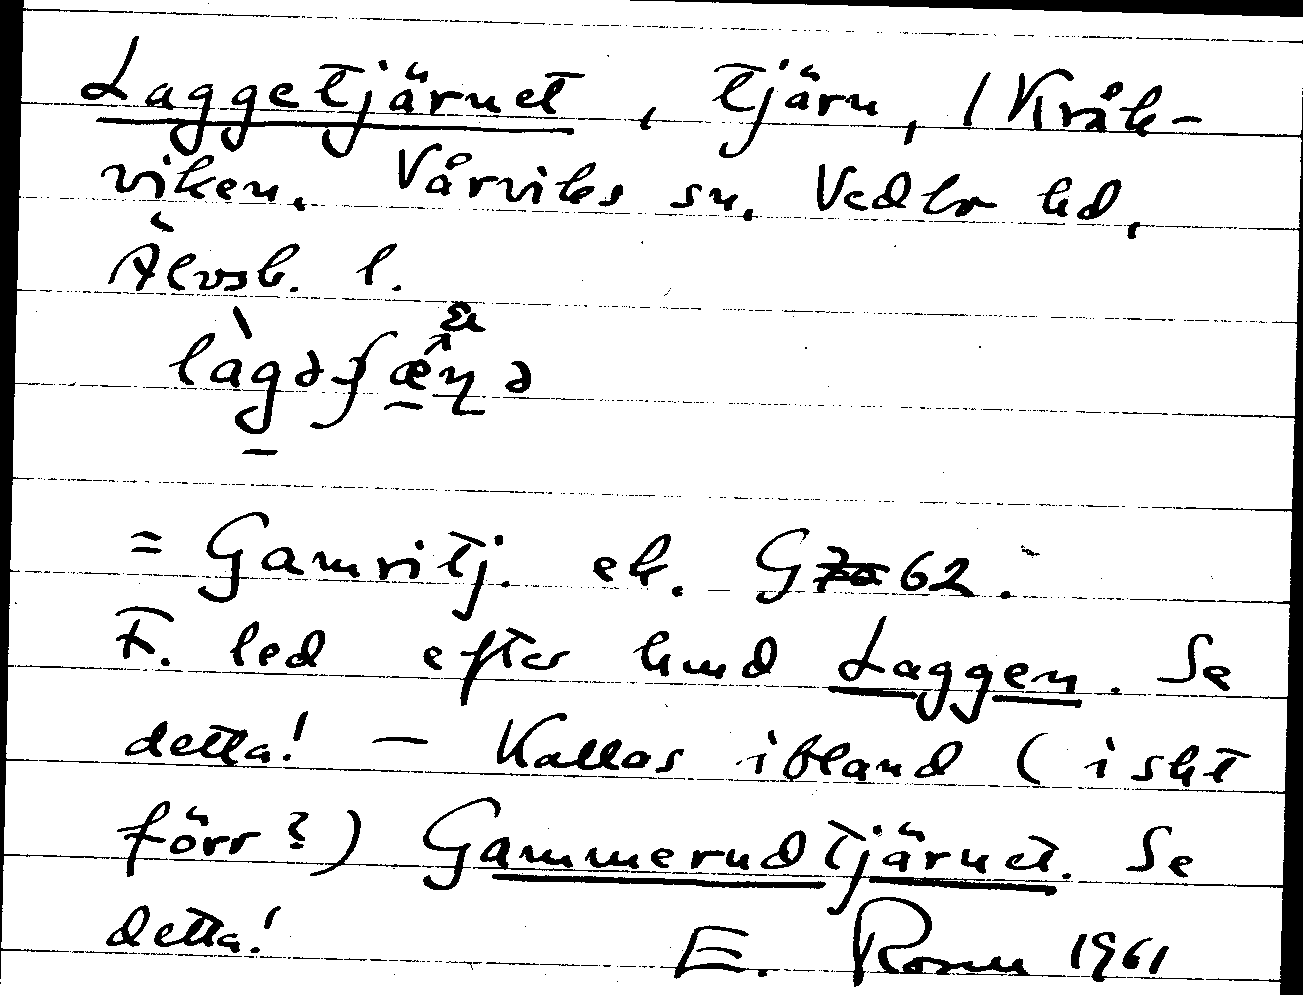 Laggetjärnet, tjärn, / Kråk-
viken. Vårviks sn. Vedbo hd,
Älvsb. l.
= Gamritj. ek. G 62.
F. led efter hmd Laggen. Se
detta! – Kallas ibland (isht
förr?) Gammerudtjärnet. Se
detta! E. Rosen 1961